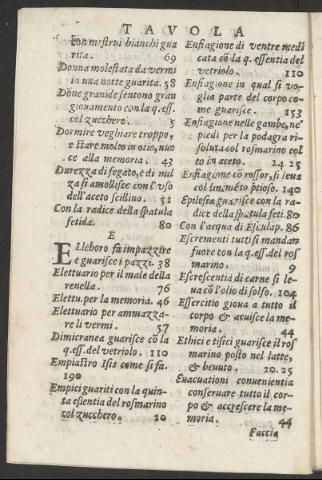 TAVOLA
con mestrui bianchi gua
rita. 69
Donna molestata da vermi
in una notte guarita. 58
Dōne granide sentono gran
giouamento con la q. ess.
col zucchero. 5
Dormire veghiare troppo,
e stare molto in otio, nuo
ce alla memoria. 43
Durezza di fegato, è di mil
za si amollisce con l'vso
dell'aceto scillino. 51
Con la radice della spatula
fetida. 80
E
ELleboro fa impazzire
e guarisce i pazzi. 38
Elettuario per il male della
renella. 76
Elettu. per la memoria. 46
Elettuario per ammazza-
re li vermi. 57
Dimicranea guarisce cō la
q. ess. del vetriolo. 110
Empiastro Isis come si fa.
190
Empici guariti con la quin-
ta essentia del rosmarino
col zucchero. 20
Enfiagione di ventre medi
cata cō la q. essentia del
vetriolo. 110
Enfiagione in qual si vo-
glia parte del corpo co-
me guarisce. 153
Enfiagione nelle gambe, ne'
piedi per la podagra ri-
soluta col rosmarino col
to in aceto. 24.25
Enfiagione cō rossor, si leua
col linimēto ptioso. 140
Epilesia guarisce con la ra-
dice della spatula feti. 80
Con l'acqua di Esculap. 86
Escrementi tutti si mandan
fuore con la q. ess. del ros
marino. 9
Escrescentia di carne si le-
ua cō l'olio di solfo. 104
Essercitio gioua a tutto il
corpo & acuisce la me-
moria. 44
Ethici e tisici guarisce il ros
marino posto nel latte,
& beuuto. 20.25
Euacuationi conuenientia
conseruare tutto il cor-
po & accrescere la me-
moria. 44
Faccia